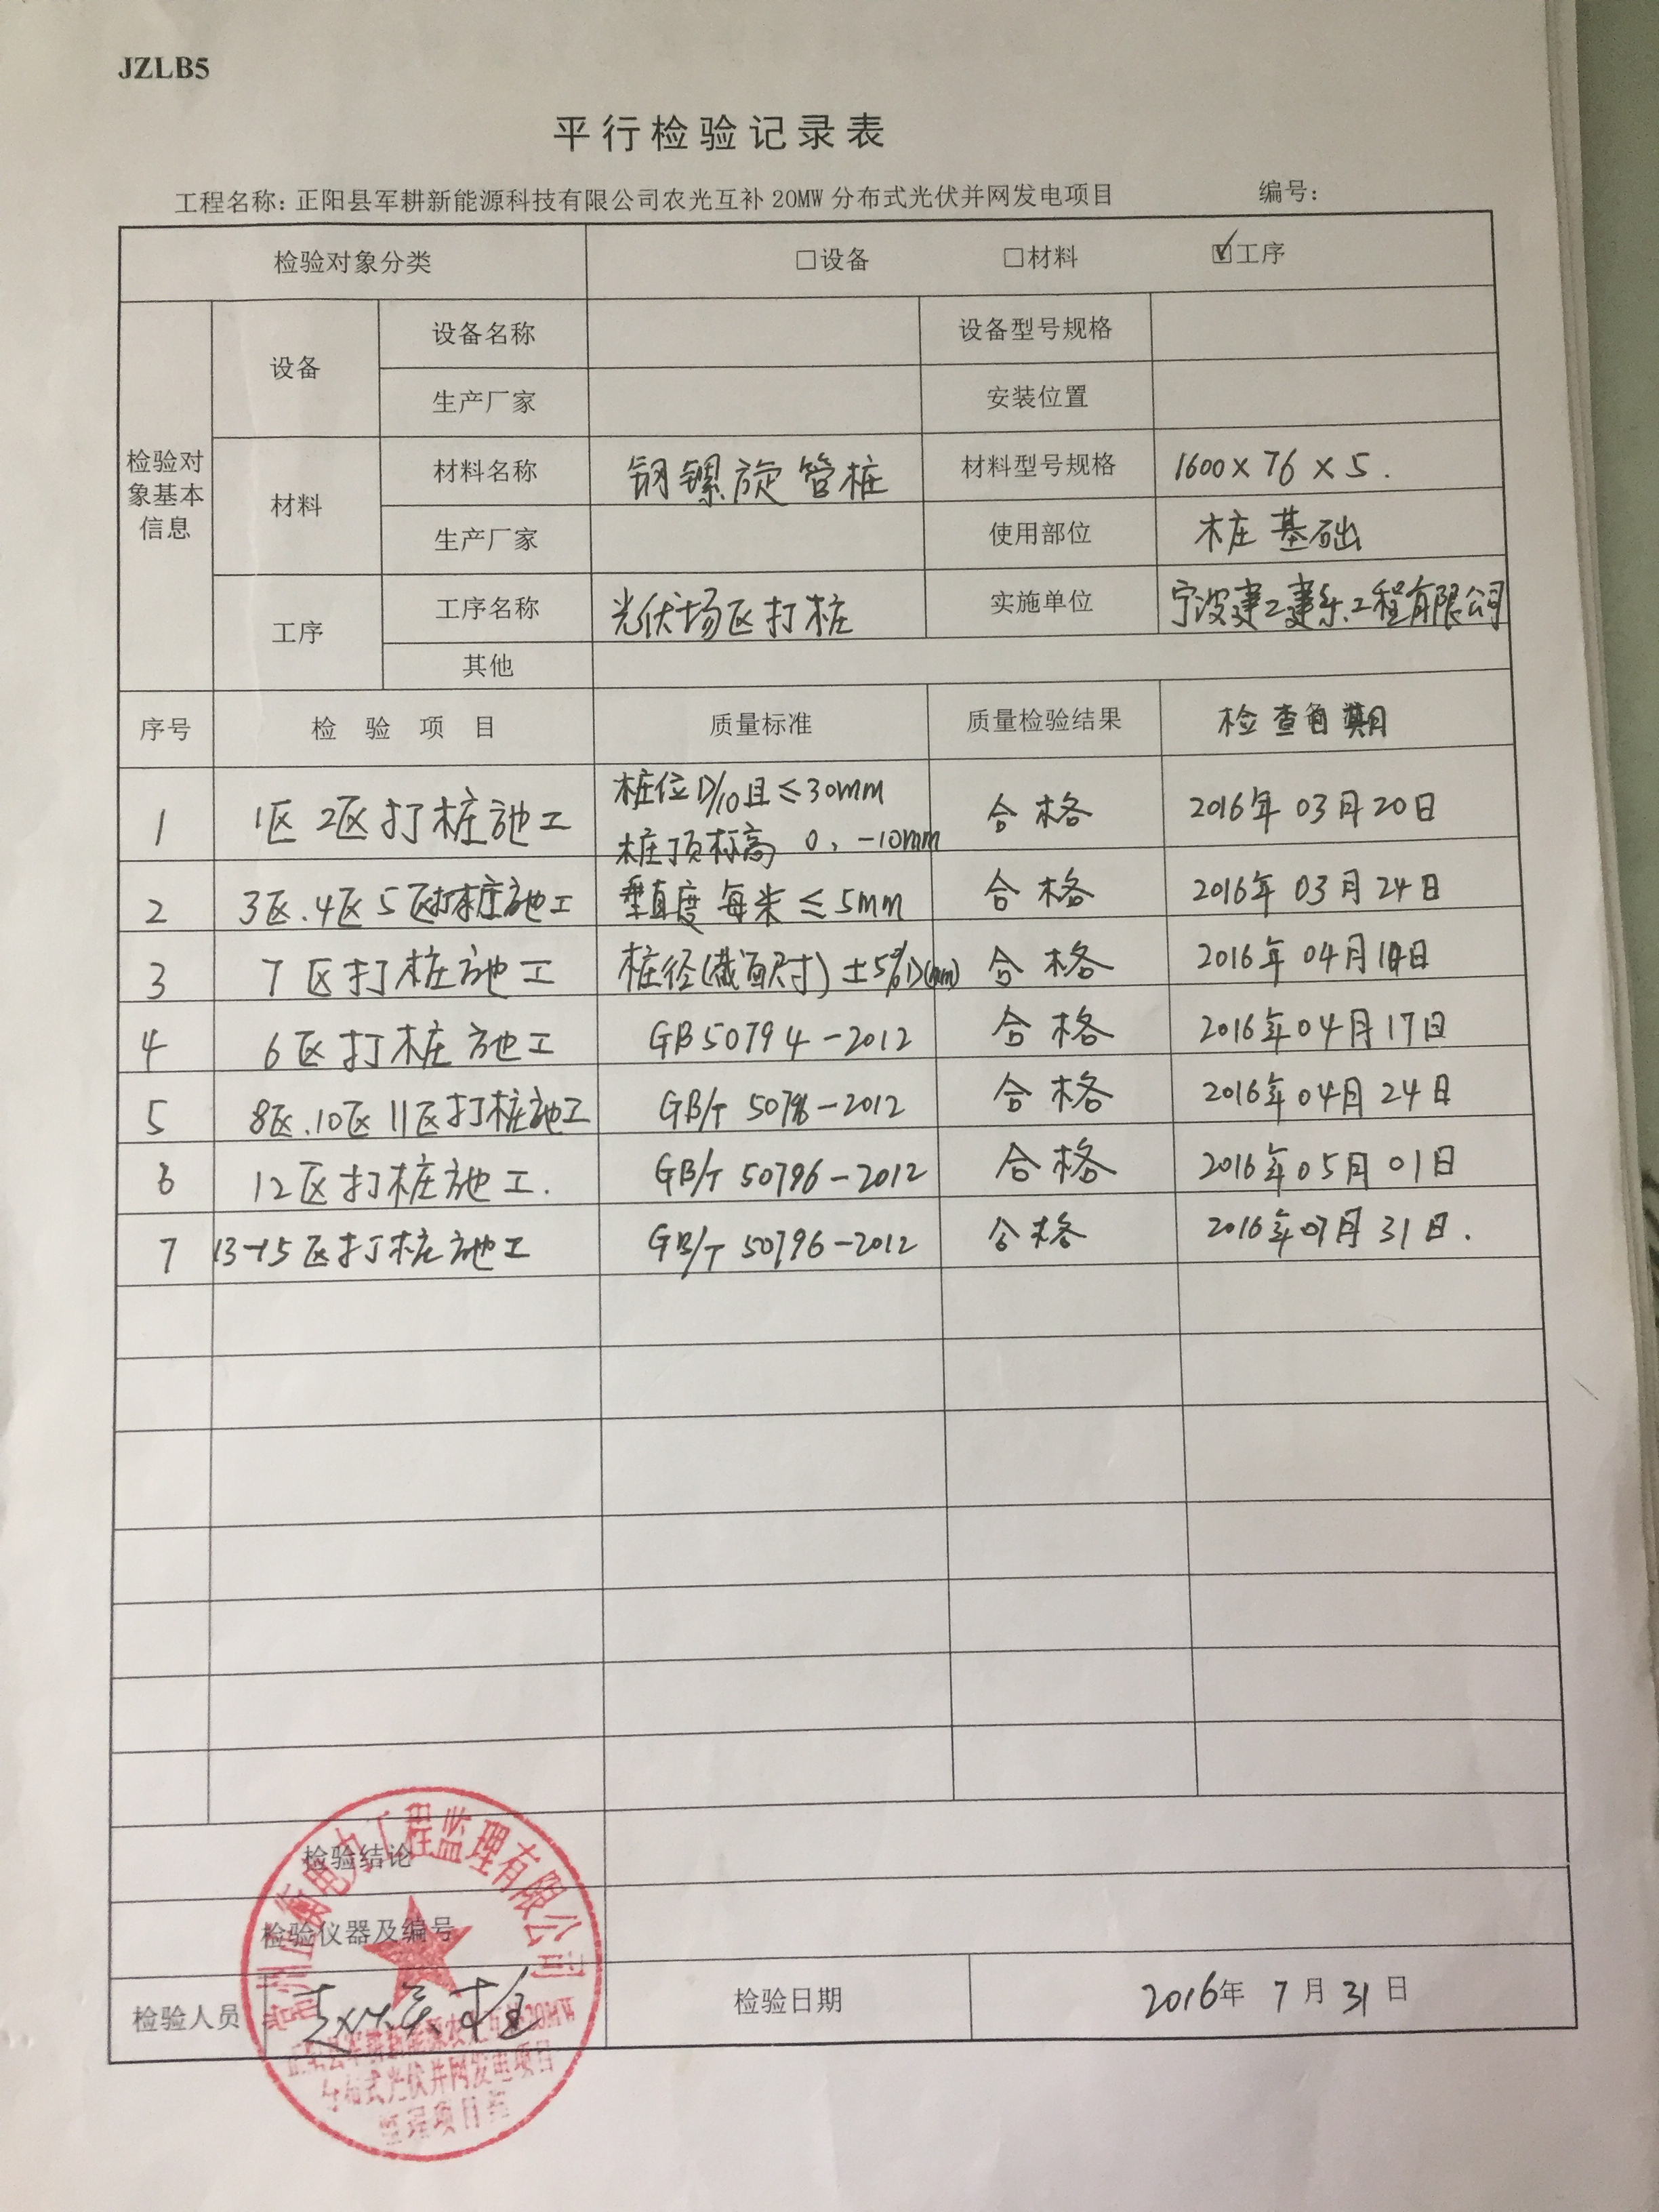 JZLB5
平行检验记录表
工程名称: 正阳县军耕新能源科技有限公司农光互补20MW分布式光伏并网发电项目 编号:
检验对象分类 □设备 □材料 ☑工序
检验对象基本信息
设备 设备名称 设备型号规格
生产厂家 安装位置
材料 材料名称 钢螺旋管桩 材料型号规格 1600×76×5.
生产厂家 使用部位 桩基础
工序 工序名称 光伏场区打桩 实施单位 宁波建工建乐工程有限公司
其他
序号 检验项目 质量标准 质量检验结果 检查日期
1 1区 2区打桩施工 桩位D/10且≤30mm 合格 2016年03月20日
桩顶标高 0,-10mm
2 3区.4区5区打桩施工 垂直度每米≤5mm 合格 2016年03月24日
3 7区打桩施工 桩径(截面尺寸)±5%D(mm) 合格 2016年04月日
4 6区打桩施工 GB50794-2012 合格 2016年04月17日
5 8区.10区11区打桩施工 GB/T 50796-2012 合格 2016年04月24日
6 12区打桩施工. GB/T 50796-2012 合格 2016年05月01日
7 13-15区打桩施工 GB/T 50796-2012 合格 2016年07月31日.
检验结论
检验仪器及编号
检验人员 检验日期 2016年7月31日
常州正衡电力工程监理有限公司
正阳县军耕新能源农光互补20MW
分布式光伏并网发电项目
监理项目部